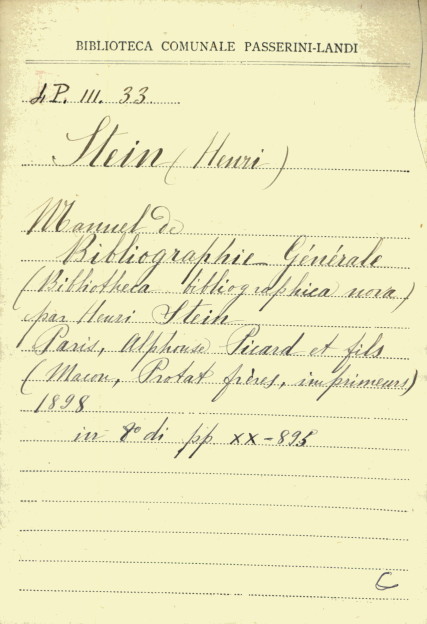 BIBLIOTECA COMUNALE PASSERINI-LANDI
P. III. 33.
Stein (Henri)
Manuel de
Bibliographie Générale
(Bibliotheca bibliographica nova)
par Henri Stein
Paris, Alphonse Picard et fils
(Macon, Protat frères, imprimeurs)
1898
in 8° di pp XX-895